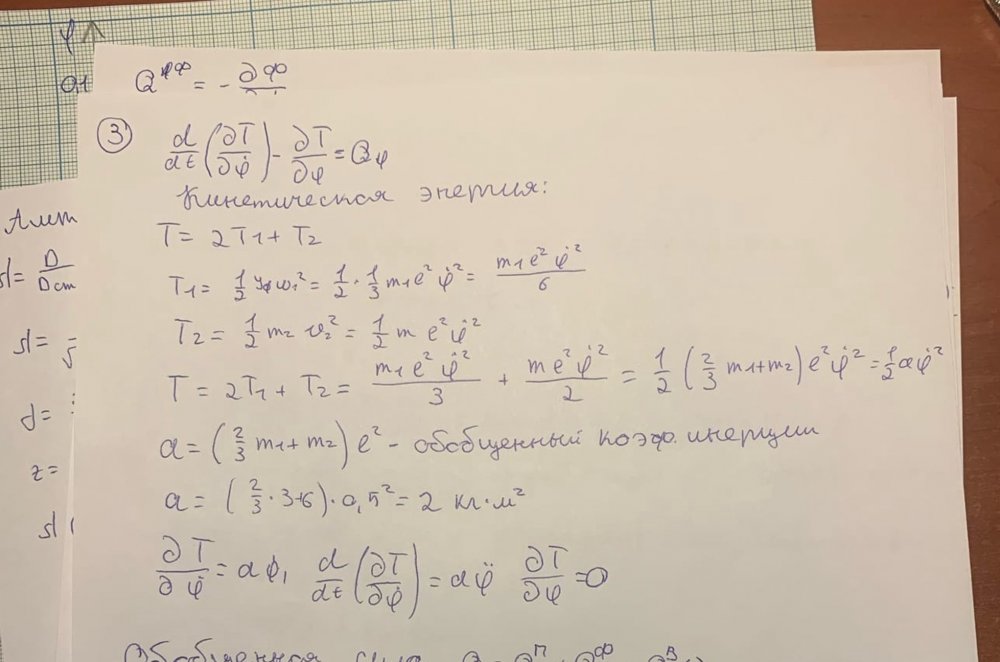 φ
Q^{ψφ} = - ∂φ
③
d/dt (∂T/∂φ̇) - ∂T/∂φ = Qφ
Кинетическая энергия:
T = 2T₁ + T₂
T₁ = 1/2 J₁ω₁² = 1/2 · 1/3 m₁ e² φ̇² = m₁e²φ̇²/6
T₂ = 1/2 m₂ v₂² = 1/2 m e² φ̇²
T = 2T₁ + T₂ = m₁e²φ̇²/3 + me²φ̇²/2 = 1/2 (2/3 m₁+m₂) e² φ̇² = 1/2 aφ̇²
a = (2/3 m₁+m₂) e² - обобщенный коэф. инерции
a = (2/3 · 3+6) · 0,5² = 2 кг·м²
∂T/∂φ̇ = aφ̇, d/dt (∂T/∂φ̇) = aφ̈ ∂T/∂φ = 0
D
Dст
z =